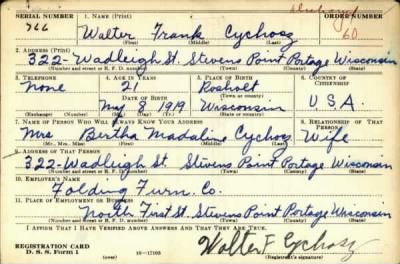 SERIAL NUMBER 1. NAME (Print) ORDER NUMBER
766 Walter Frank Cychosz 60
(First) (Middle) (Last)
2. ADDRESS (Print)
322-Wadleigh St. Stevens Point Portage Wisconsin
(Number and street or R. F. D. number) (Town) (County) (State)
3. TELEPHONE 4. AGE IN YEARS 5. PLACE OF BIRTH 6. COUNTRY OF CITIZENSHIP
None 21 Rosholt
DATE OF BIRTH (Town or county)
May 8 1919 Wisconsin U.S.A.
(Exchange) (Number) (Mo.) (Day) (Yr.) (State or country)
7. NAME OF PERSON WHO WILL ALWAYS KNOW YOUR ADDRESS 8. RELATIONSHIP OF THAT PERSON
Mrs Bertha Madaline Cychosz Wife
(Mr., Mrs., Miss) (First) (Middle) (Last)
9. ADDRESS OF THAT PERSON
322-Wadleigh St. Stevens Point Portage Wisconsin
(Number and street or R. F. D. number) (Town) (County) (State)
10. EMPLOYER'S NAME
Folding Furn. Co.
11. PLACE OF EMPLOYMENT OR BUSINESS
North First St. Stevens Point Portage Wisconsin
(Number and street or R. F. D. number) (Town) (County) (State)
I AFFIRM THAT I HAVE VERIFIED ABOVE ANSWERS AND THAT THEY ARE TRUE.
REGISTRATION CARD
D. S. S. Form 1 16-17105 Walter F Cychosz
(Registrant's signature)